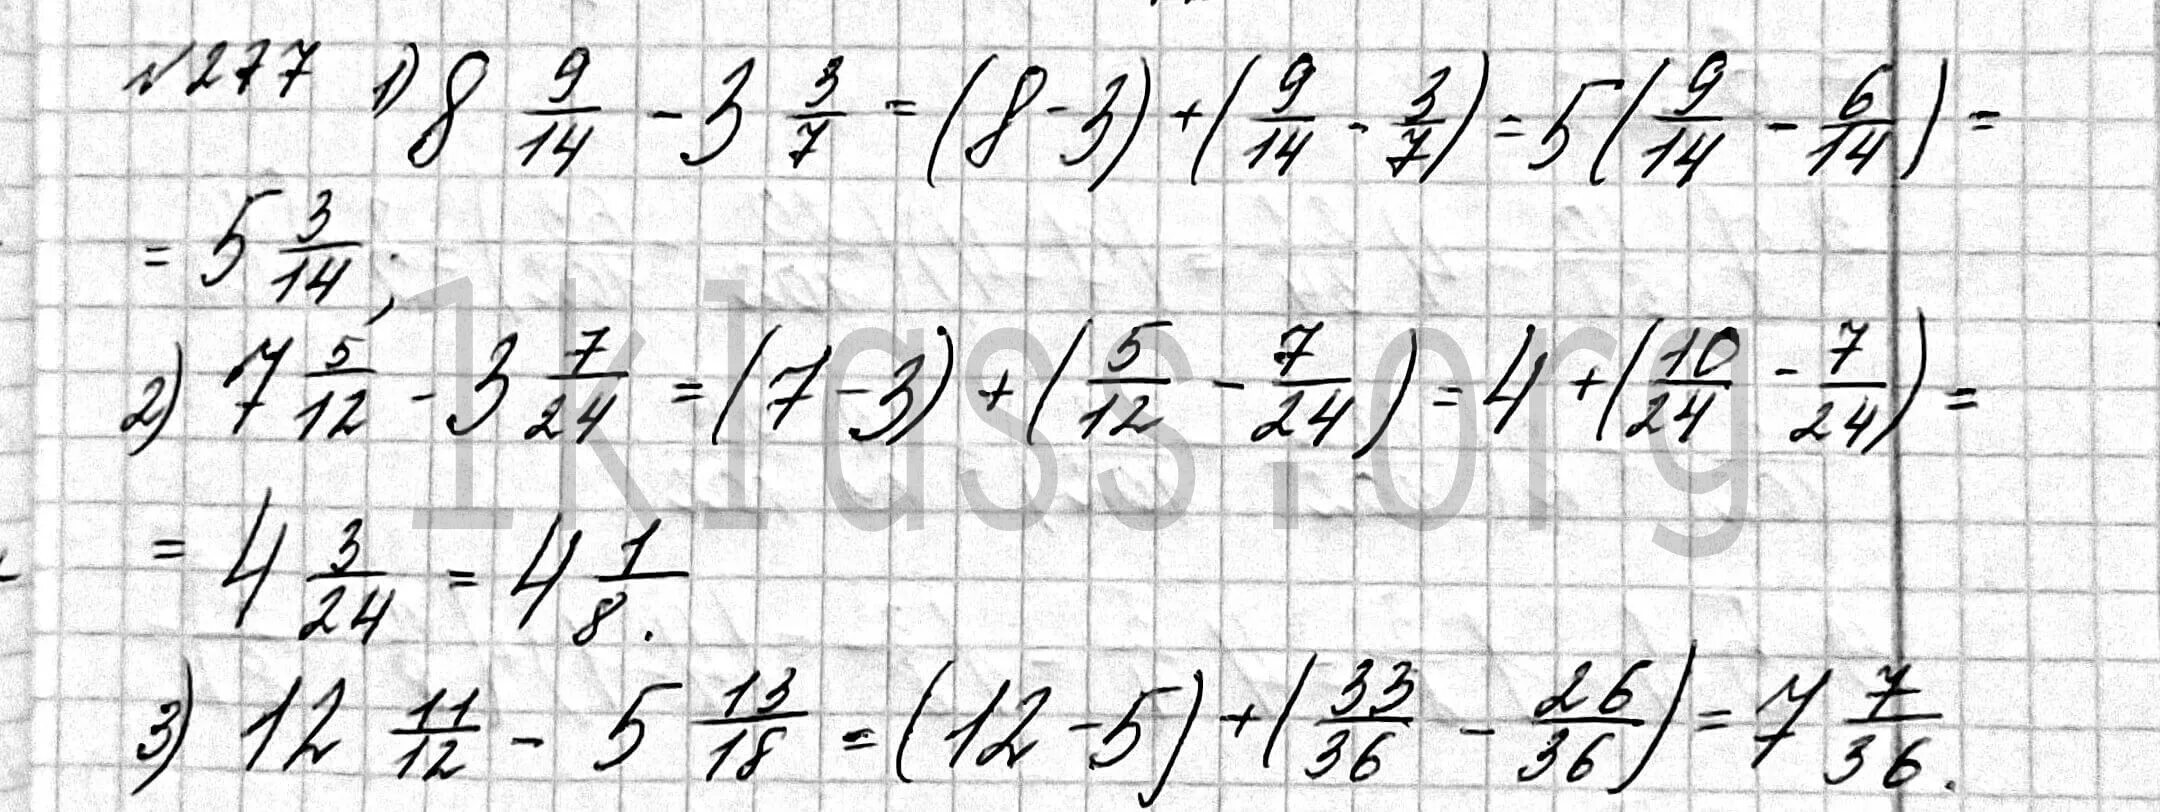 №277 1) 8 9/14 - 3 3/7 = (8-3) + (9/14 - 3/7) = 5 (9/14 - 6/14) =
= 5 3/14;
2) 7 5/12 - 3 7/24 = (7-3) + (5/12 - 7/24) = 4 + (10/24 - 7/24) =
1klass.org
= 4 3/24 = 4 1/8.
3) 12 11/12 - 5 13/18 = (12-5) + (33/36 - 26/36) = 7 7/36.